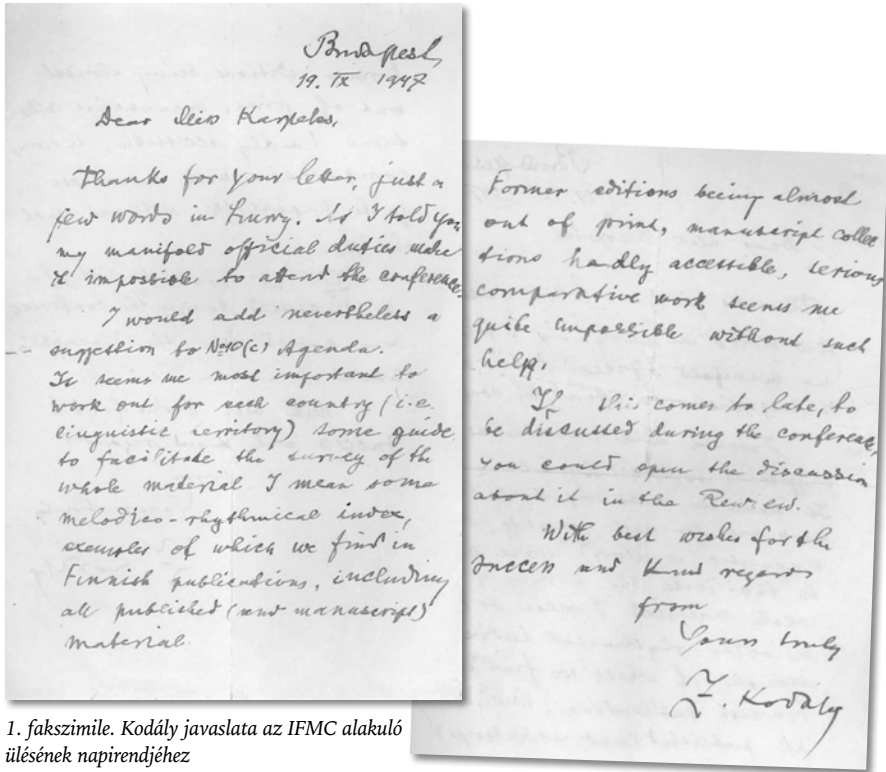 Budapest,
19. IX 1947
Dear Miss Karpeles,
Thanks for your letter, just a
few words in hurry. As I told you,
my manifold official duties make
it impossible to attend the conference.
I would add nevertheless a
suggestion to No10(c) Agenda.
It seems me most important to
work out for each country (i.e.
linguistic territory) some guide,
to facilitate the survey of the
whole material. I mean some
melodico-rhythmical index,
exemples of which we find in
Finnish publications, including
all published (and manuscript)
material.
Former editions being almost
out of print, manuscript collec
tions hardly accessible, serious
comparative work seems me
quite impossible without such
help.
If this comes to late, to
be discussed during the conference,
you could open the discussion
about it in the Rewiew.
With best wishes for the
success and kind regards
from
Yours truly
Z. Kodály
1. fakszimile. Kodály javaslata az IFMC alakuló
ülésének napirendjéhez